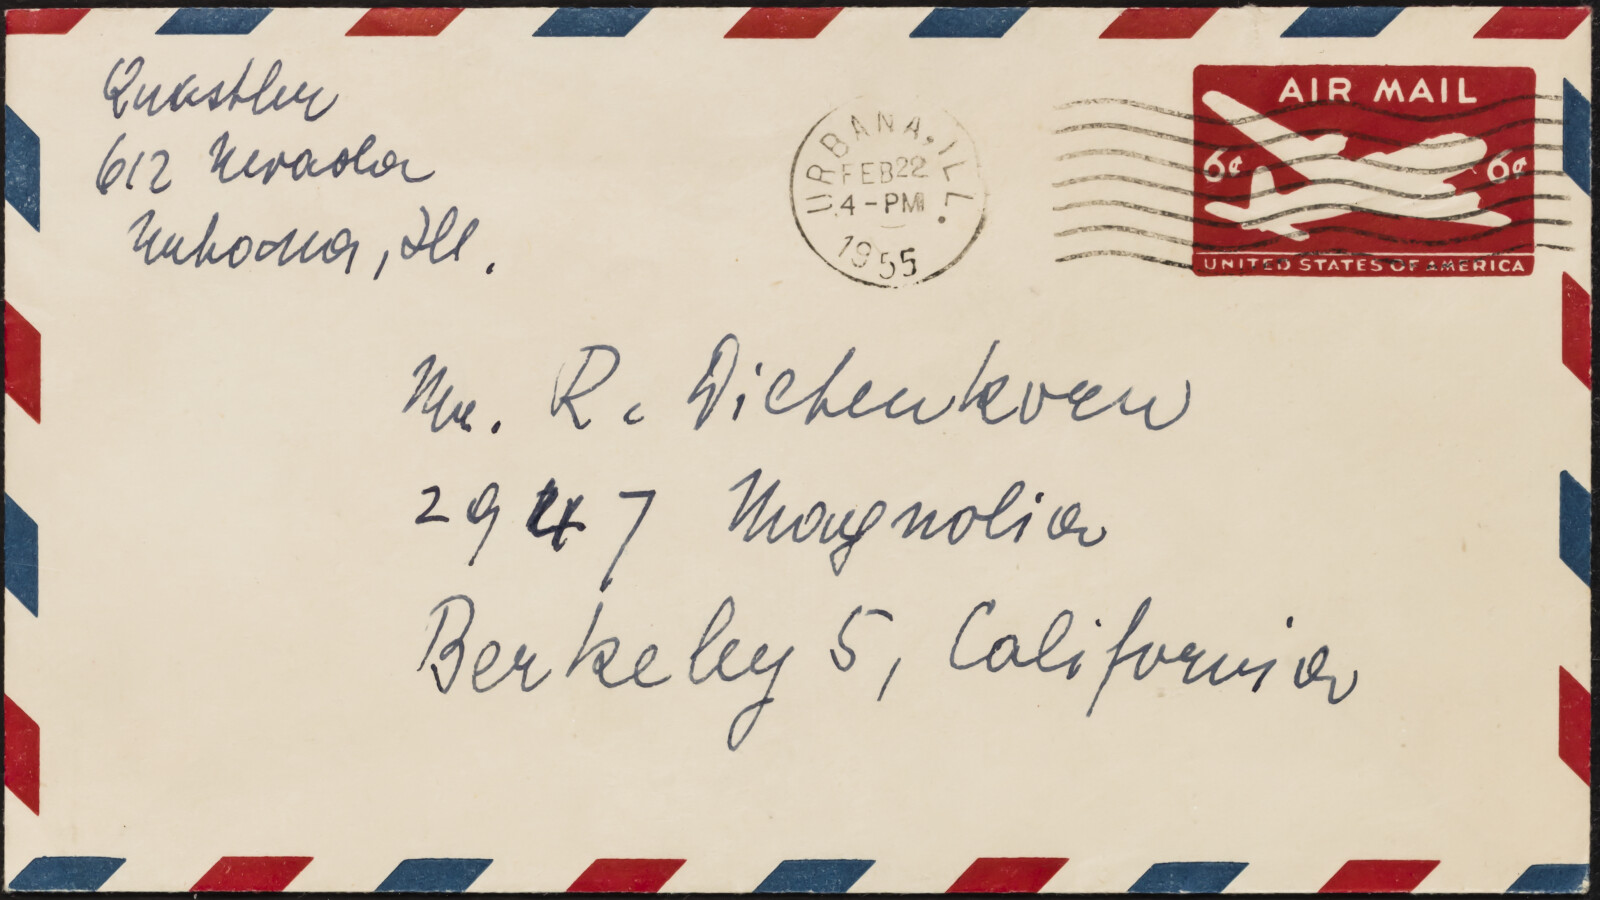 Quastler
612 Nevada
Urbana, Ill.
URBANA, ILL.
FEB 22
4-PM
1955
AIR MAIL
6¢ 6¢
UNITED STATES OF AMERICA
Mr. R. Diebenkorn
2947 Magnolia
Berkeley 5, California